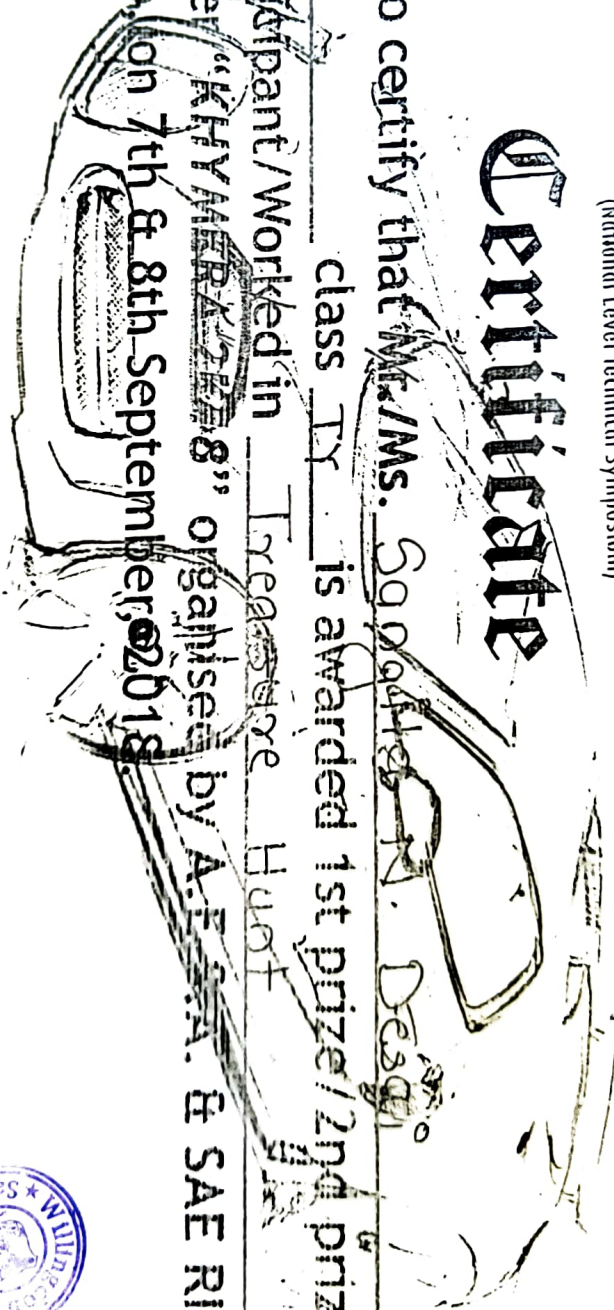 (National Level Technical Symposium)
Certificate
o certify that Mr./Ms. N. Desai
class TY is awarded 1st prize/2nd priz
cipant/Worked in Treasure Hunt
er “KHYMERA 2K18” organised by & SAE
on 7th & 8th September, 2018.
Willingdo